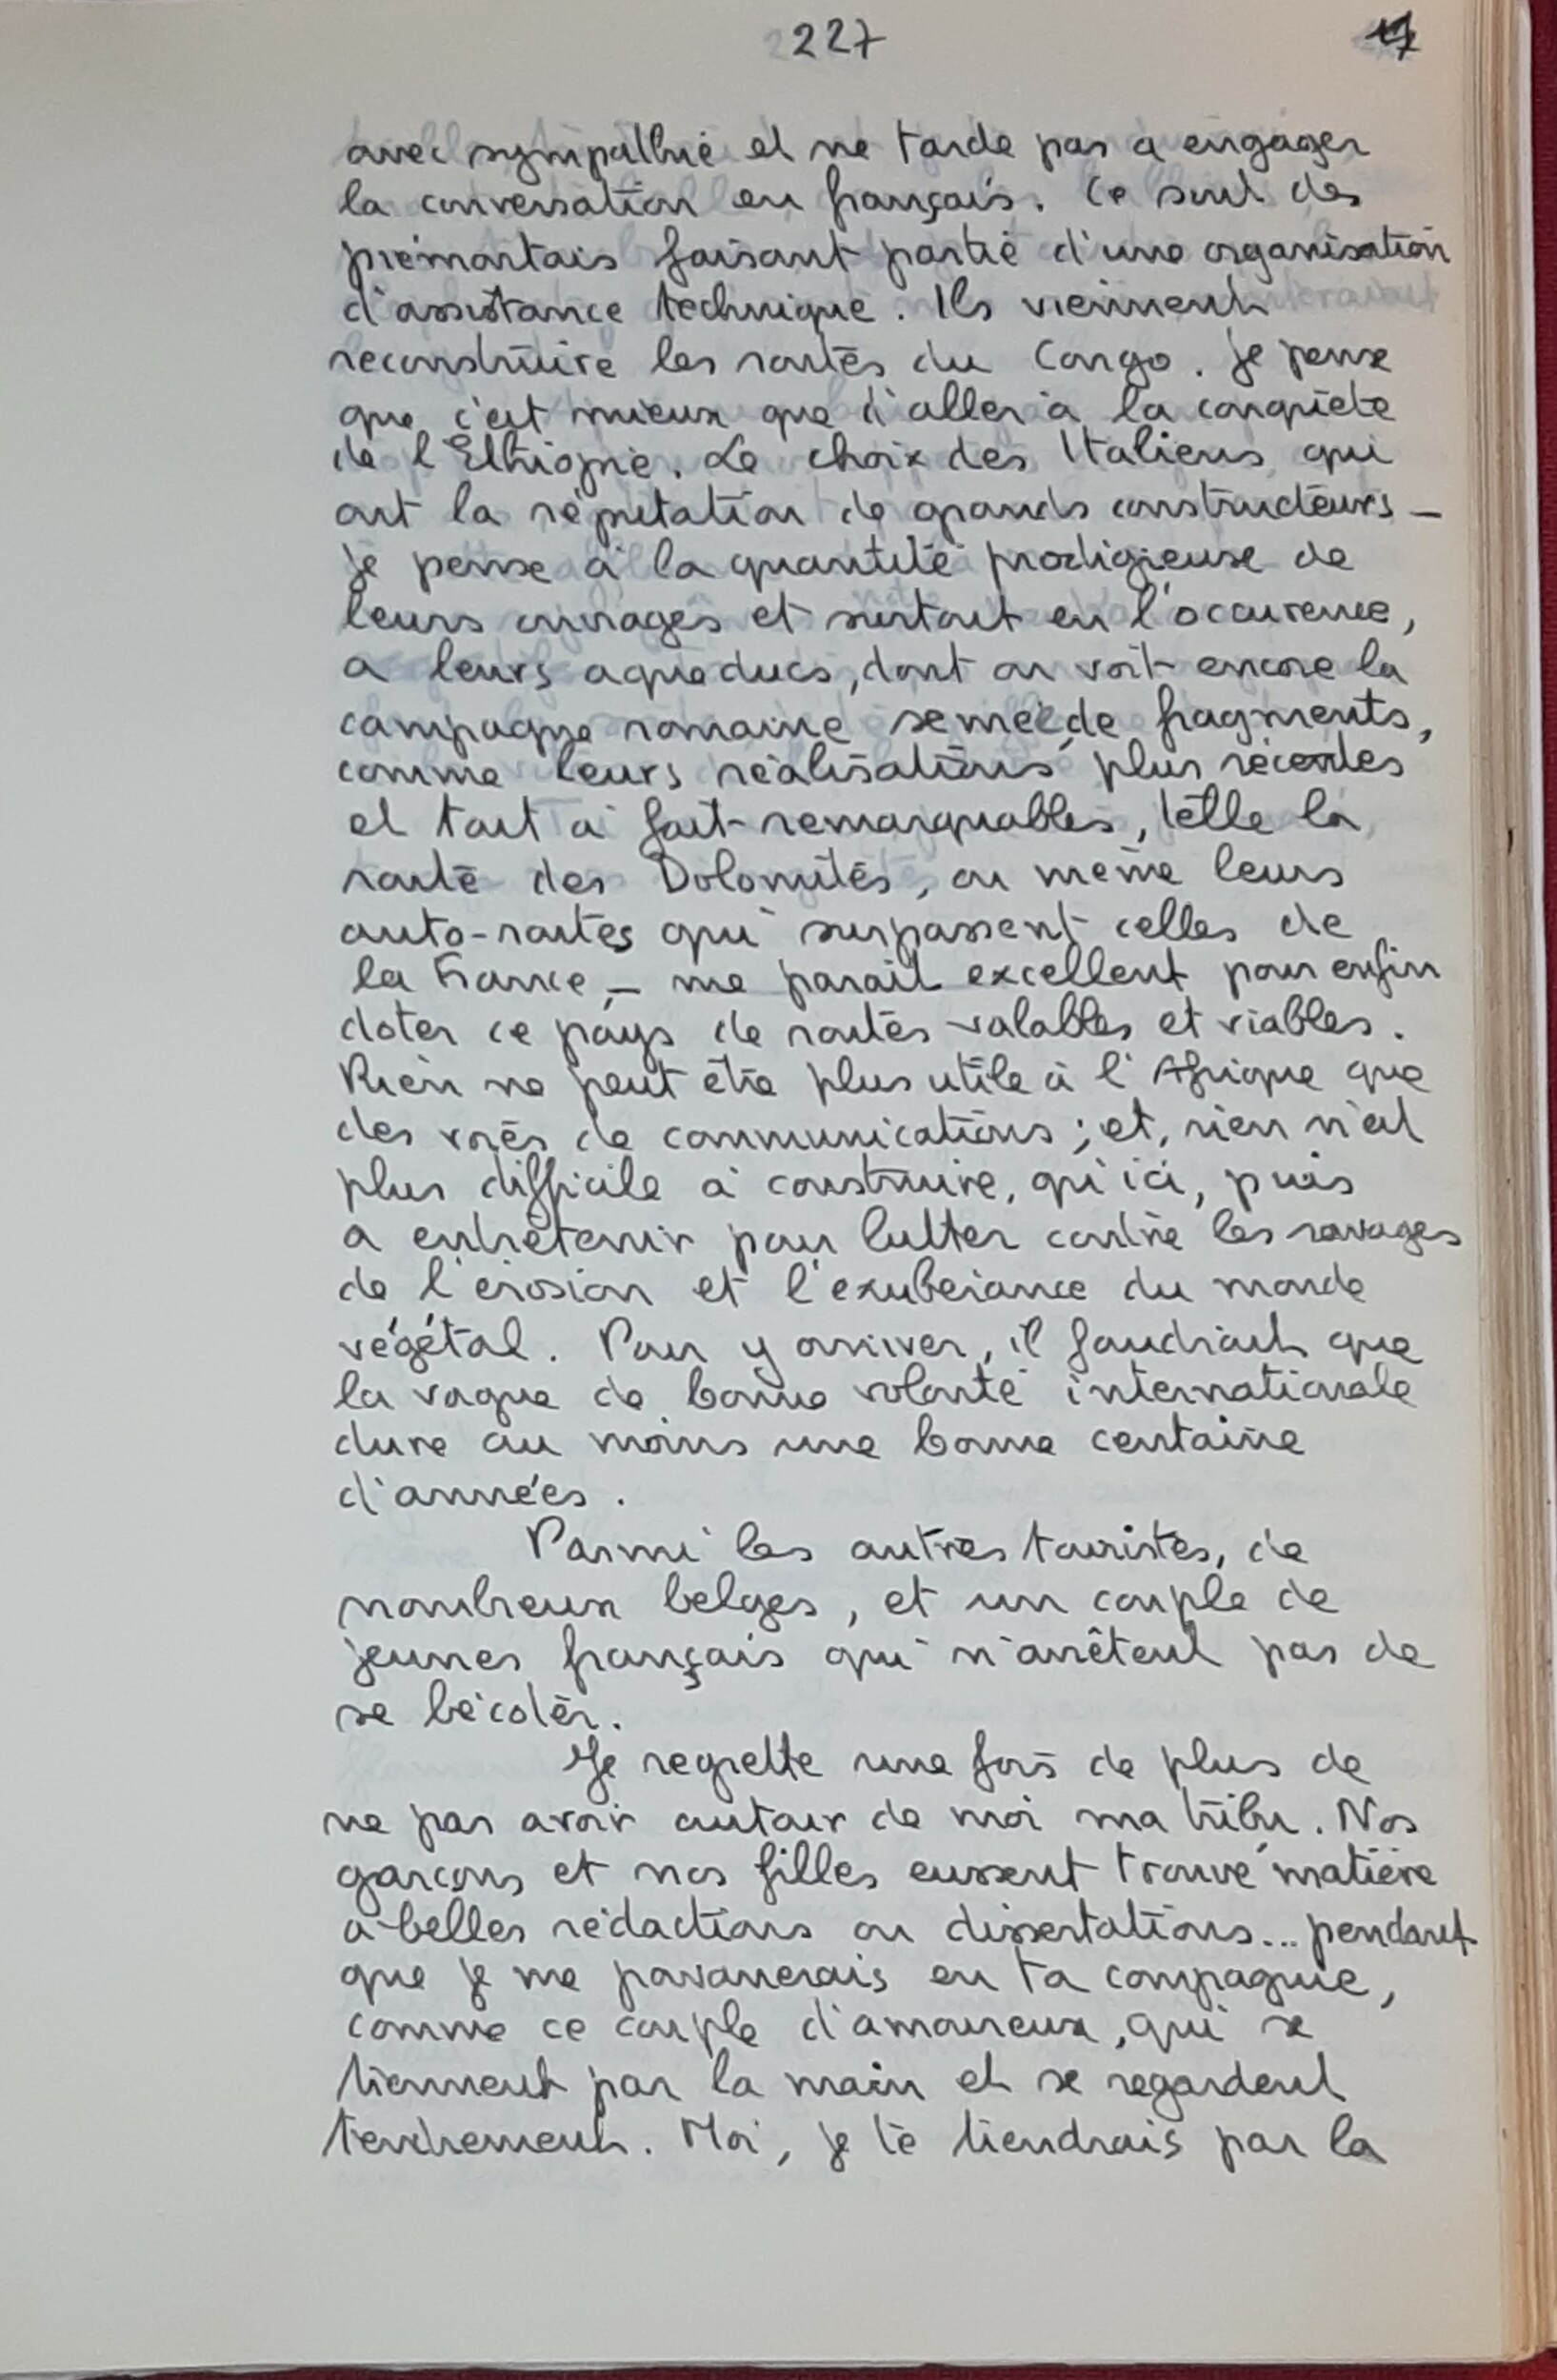 227
avec sympathie et ne tarde pas a engager
la conversation en français. Ce sont des
piémontais faisant partie d'une organisation
d'assistance technique. Ils viennent
reconstruire les routes du Congo. Je pense
que c'est mieux que d'aller à la conquête
de l'Ethiopie. Le choix des Italiens qui
ont la réputation de grands constructeurs –
je pense à la quantité prodigieuse de
leurs ouvrages et surtout en l'occurence,
a leurs aqueducs, dont on voit encore la
campagne romaine semée de fragments,
comme leurs réalisations plus récentes
et tout à fait remarquables, telle la
route des Dolomites, ou même leurs
auto-routes qui surpassent celles de
la France, – me parait excellent pour enfin
doter ce pays de routes valables et viables.
Rien ne peut être plus utile à l'Afrique que
des voies de communications ; et, rien n'est
plus difficile à construire, qu'ici, puis
a entretenir pour lutter contre les ravages
de l'érosion et l'exubérance du monde
végétal. Pour y arriver, il faudrait que
la vague de bonne volonté internationale
dure au moins une bonne centaine
d'années.
Parmi les autres touristes, de
nombreux belges, et un couple de
jeunes français qui n'arrêtent pas de
se bécoter.
Je regrette une fois de plus de
ne pas avoir autour de moi ma tribu. Nos
garçons et nos filles eussent trouvé matière
à belles rédactions ou dissertations... pendant
que je me pavanerais en ta compagnie,
comme ce couple d'amoureux, qui se
tiennent par la main et se regardent
tendrement. Moi, je te tiendrais par la